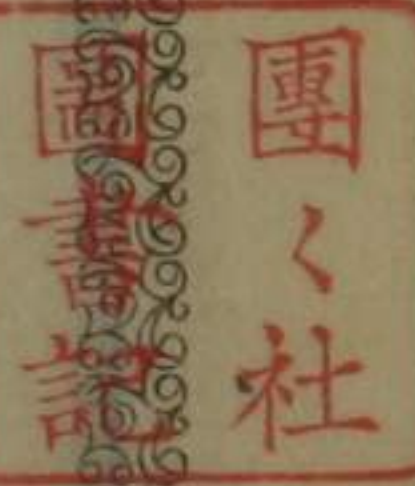 團〻社
圖書記